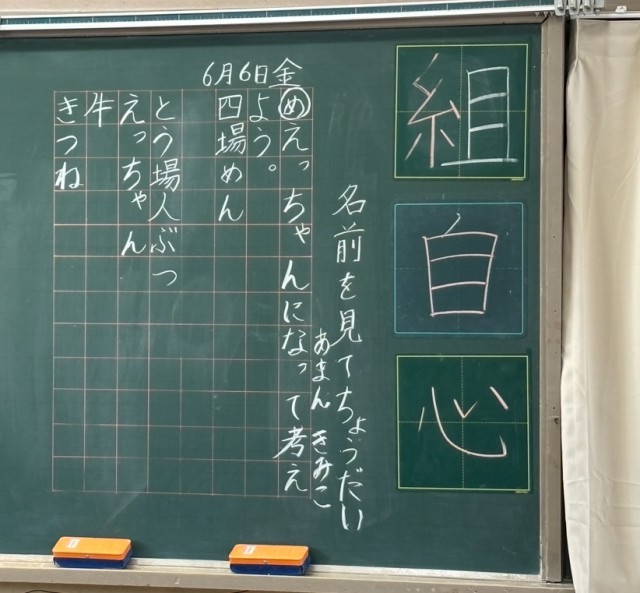 組
自
心
6月6日金
名前を見てちょうだい
あまん きみこ
めえっちゃんになって考え
よう。
四場めん
とう場人ぶつ
えっちゃん
牛
きつね